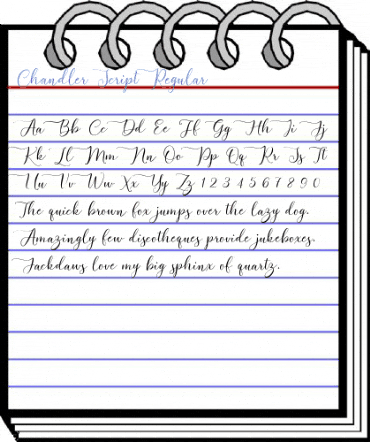 Chandler Script Regular
Aa Bb Cc Dd Ee Ff Gg Hh Ii Jj
Kk Ll Mm Nn Oo Pp Qq Rr Ss Tt
Uu Vv Ww Xx Yy Zz 1 2 3 4 5 6 7 8 9 0
The quick brown fox jumps over the lazy dog.
Amazingly few discotheques provide jukeboxes.
Jackdaws love my big sphinx of quartz.